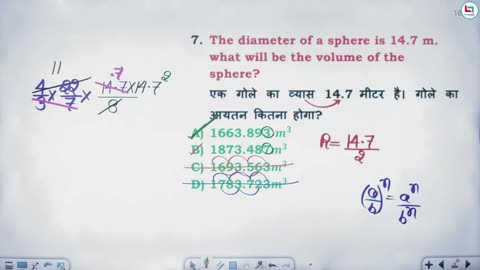 7. The diameter of a sphere is 14.7 m.
what will be the volume of the
sphere?
एक गोले का व्यास 14.7 मीटर है। गोले का
आयतन कितना होगा?
A) 1663.893m³
B) 1873.487m³
C) 1693.563m³
D) 1783.723m³
11
.7
4/3 × 22/7 × 14.7×14.7²/8
R=14.7/2
(a/b)ⁿ=aⁿ/bⁿ